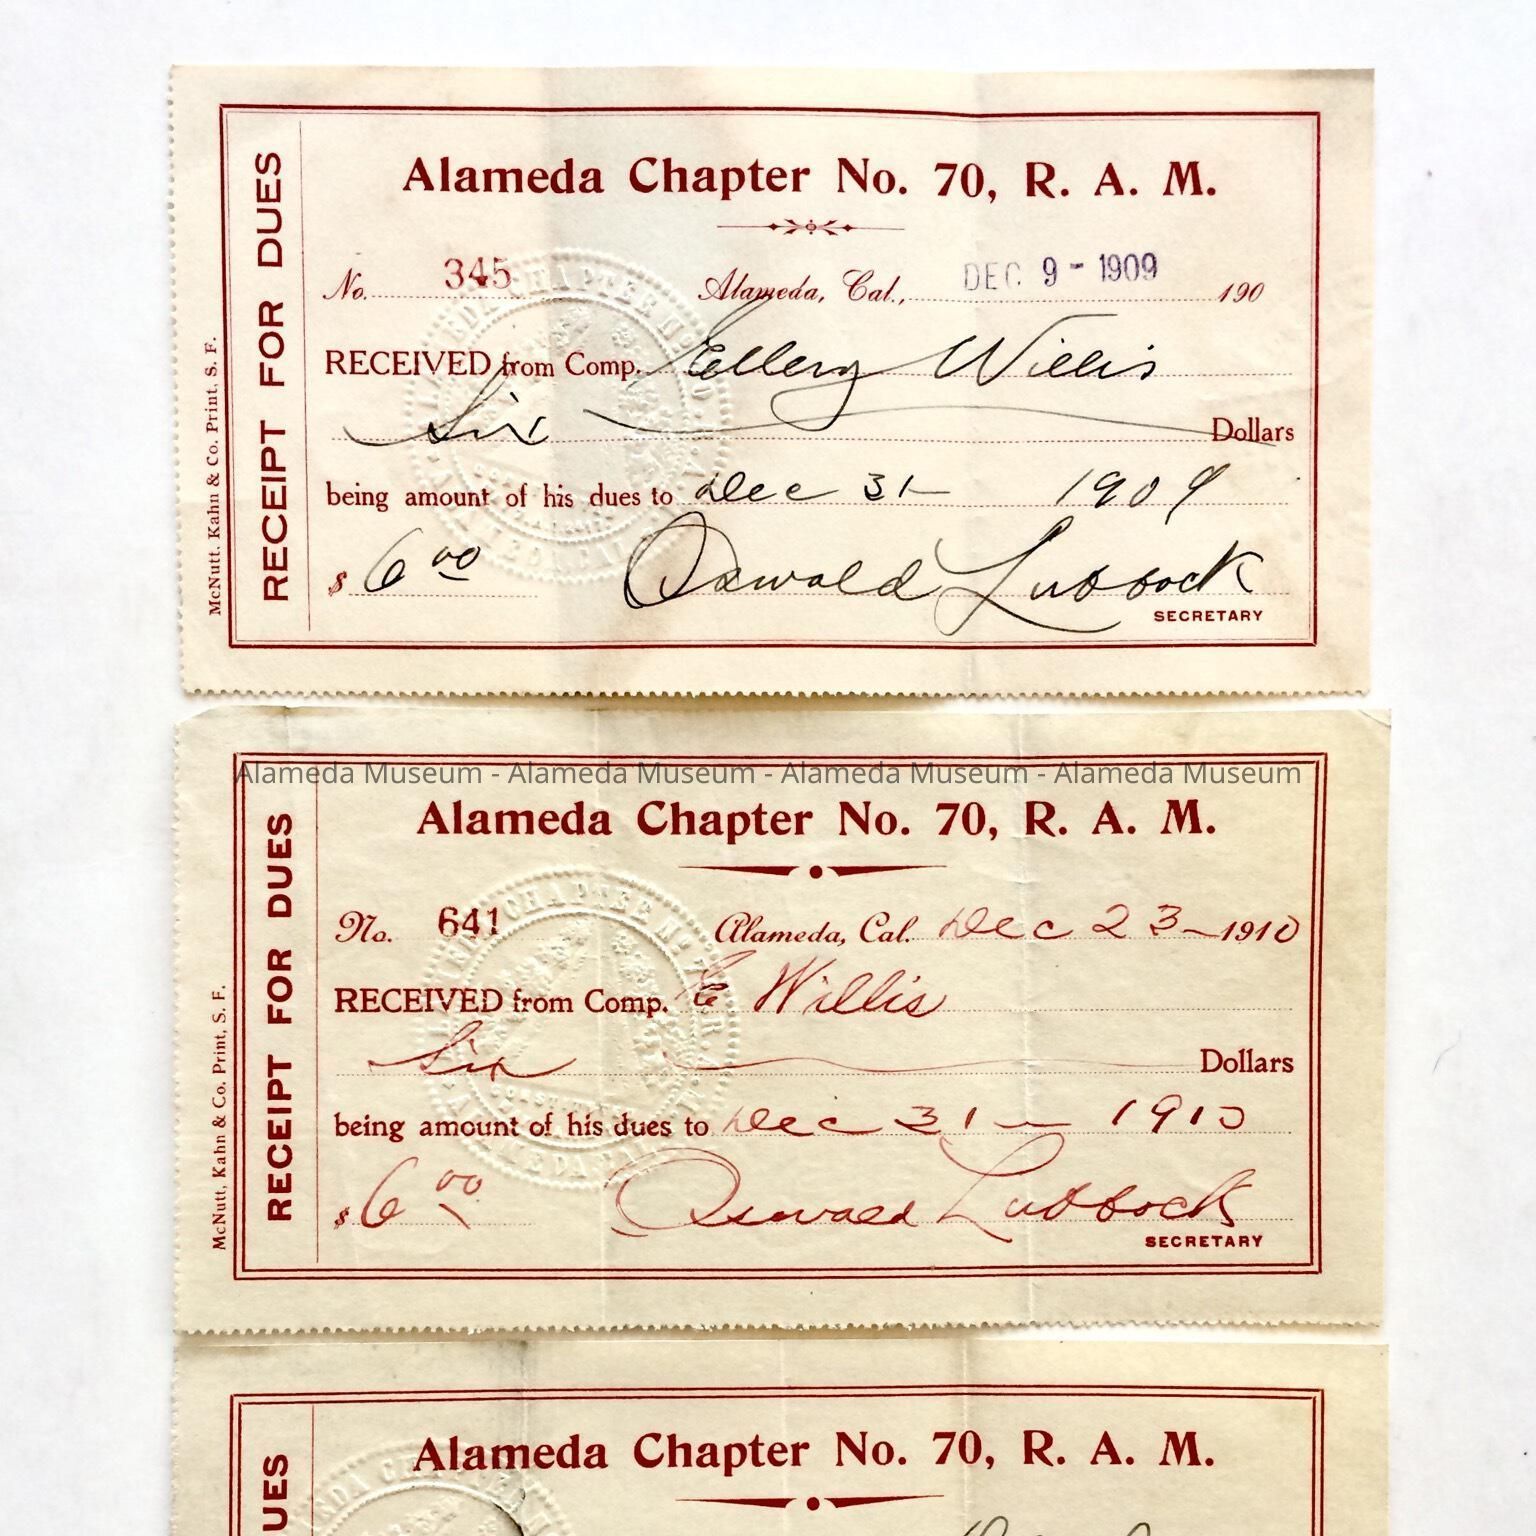 Alameda Chapter No. 70, R. A. M.
No. 345 Alameda, Cal., DEC 9 - 1909 190
RECEIVED from Comp. Ellery Willis
Six Dollars
being amount of his dues to Dec 31 - 1909
$ 6 00 Oswald Lubbock
SECRETARY
RECEIPT FOR DUES
McNutt, Kahn & Co. Print, S. F.
Alameda Museum - Alameda Museum - Alameda Museum - Alameda Museum
Alameda Chapter No. 70, R. A. M.
No. 641 Alameda, Cal. Dec 23 - 1910
RECEIVED from Comp. E Willis
Six Dollars
being amount of his dues to Dec 31 - 1910
$ 6 00 Oswald Lubbock
SECRETARY
RECEIPT FOR DUES
McNutt, Kahn & Co. Print, S. F.
Alameda Chapter No. 70, R. A. M.
DUES